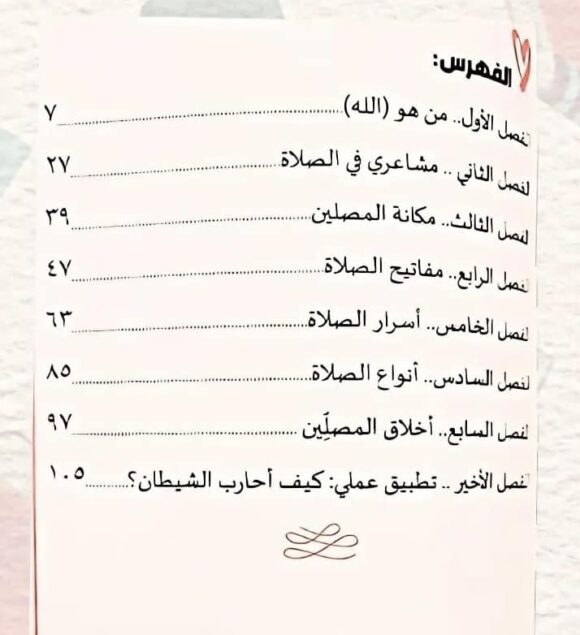 الفهرس:
الفصل الأول.. من هو (الله)......٧
الفصل الثاني .. مشاعري في الصلاة......٢٧
الفصل الثالث.. مكانة المصلين......٣٩
الفصل الرابع.. مفاتيح الصلاة......٤٧
الفصل الخامس.. أسرار الصلاة......٦٣
الفصل السادس.. أنواع الصلاة......٨٥
الفصل السابع.. أخلاق المصلِّين......٩٧
الفصل الأخير .. تطبيق عملي: كيف أحارب الشيطان؟......١٠٥